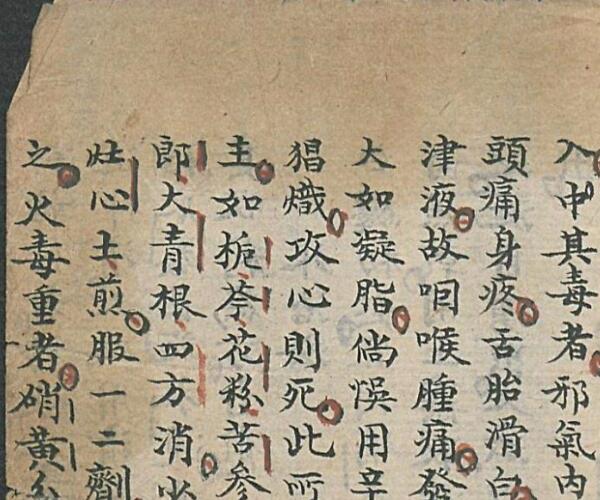 入中其毒者邪氣内
頭痛身疼舌胎滑白
津液故咽喉腫痛發
大如凝脂倘悞用辛
猖熾攻心則死此所
主如梔芩花粉苦參
郎大青根四方消
灶心土煎服一二劑
之火毒重者硝黃